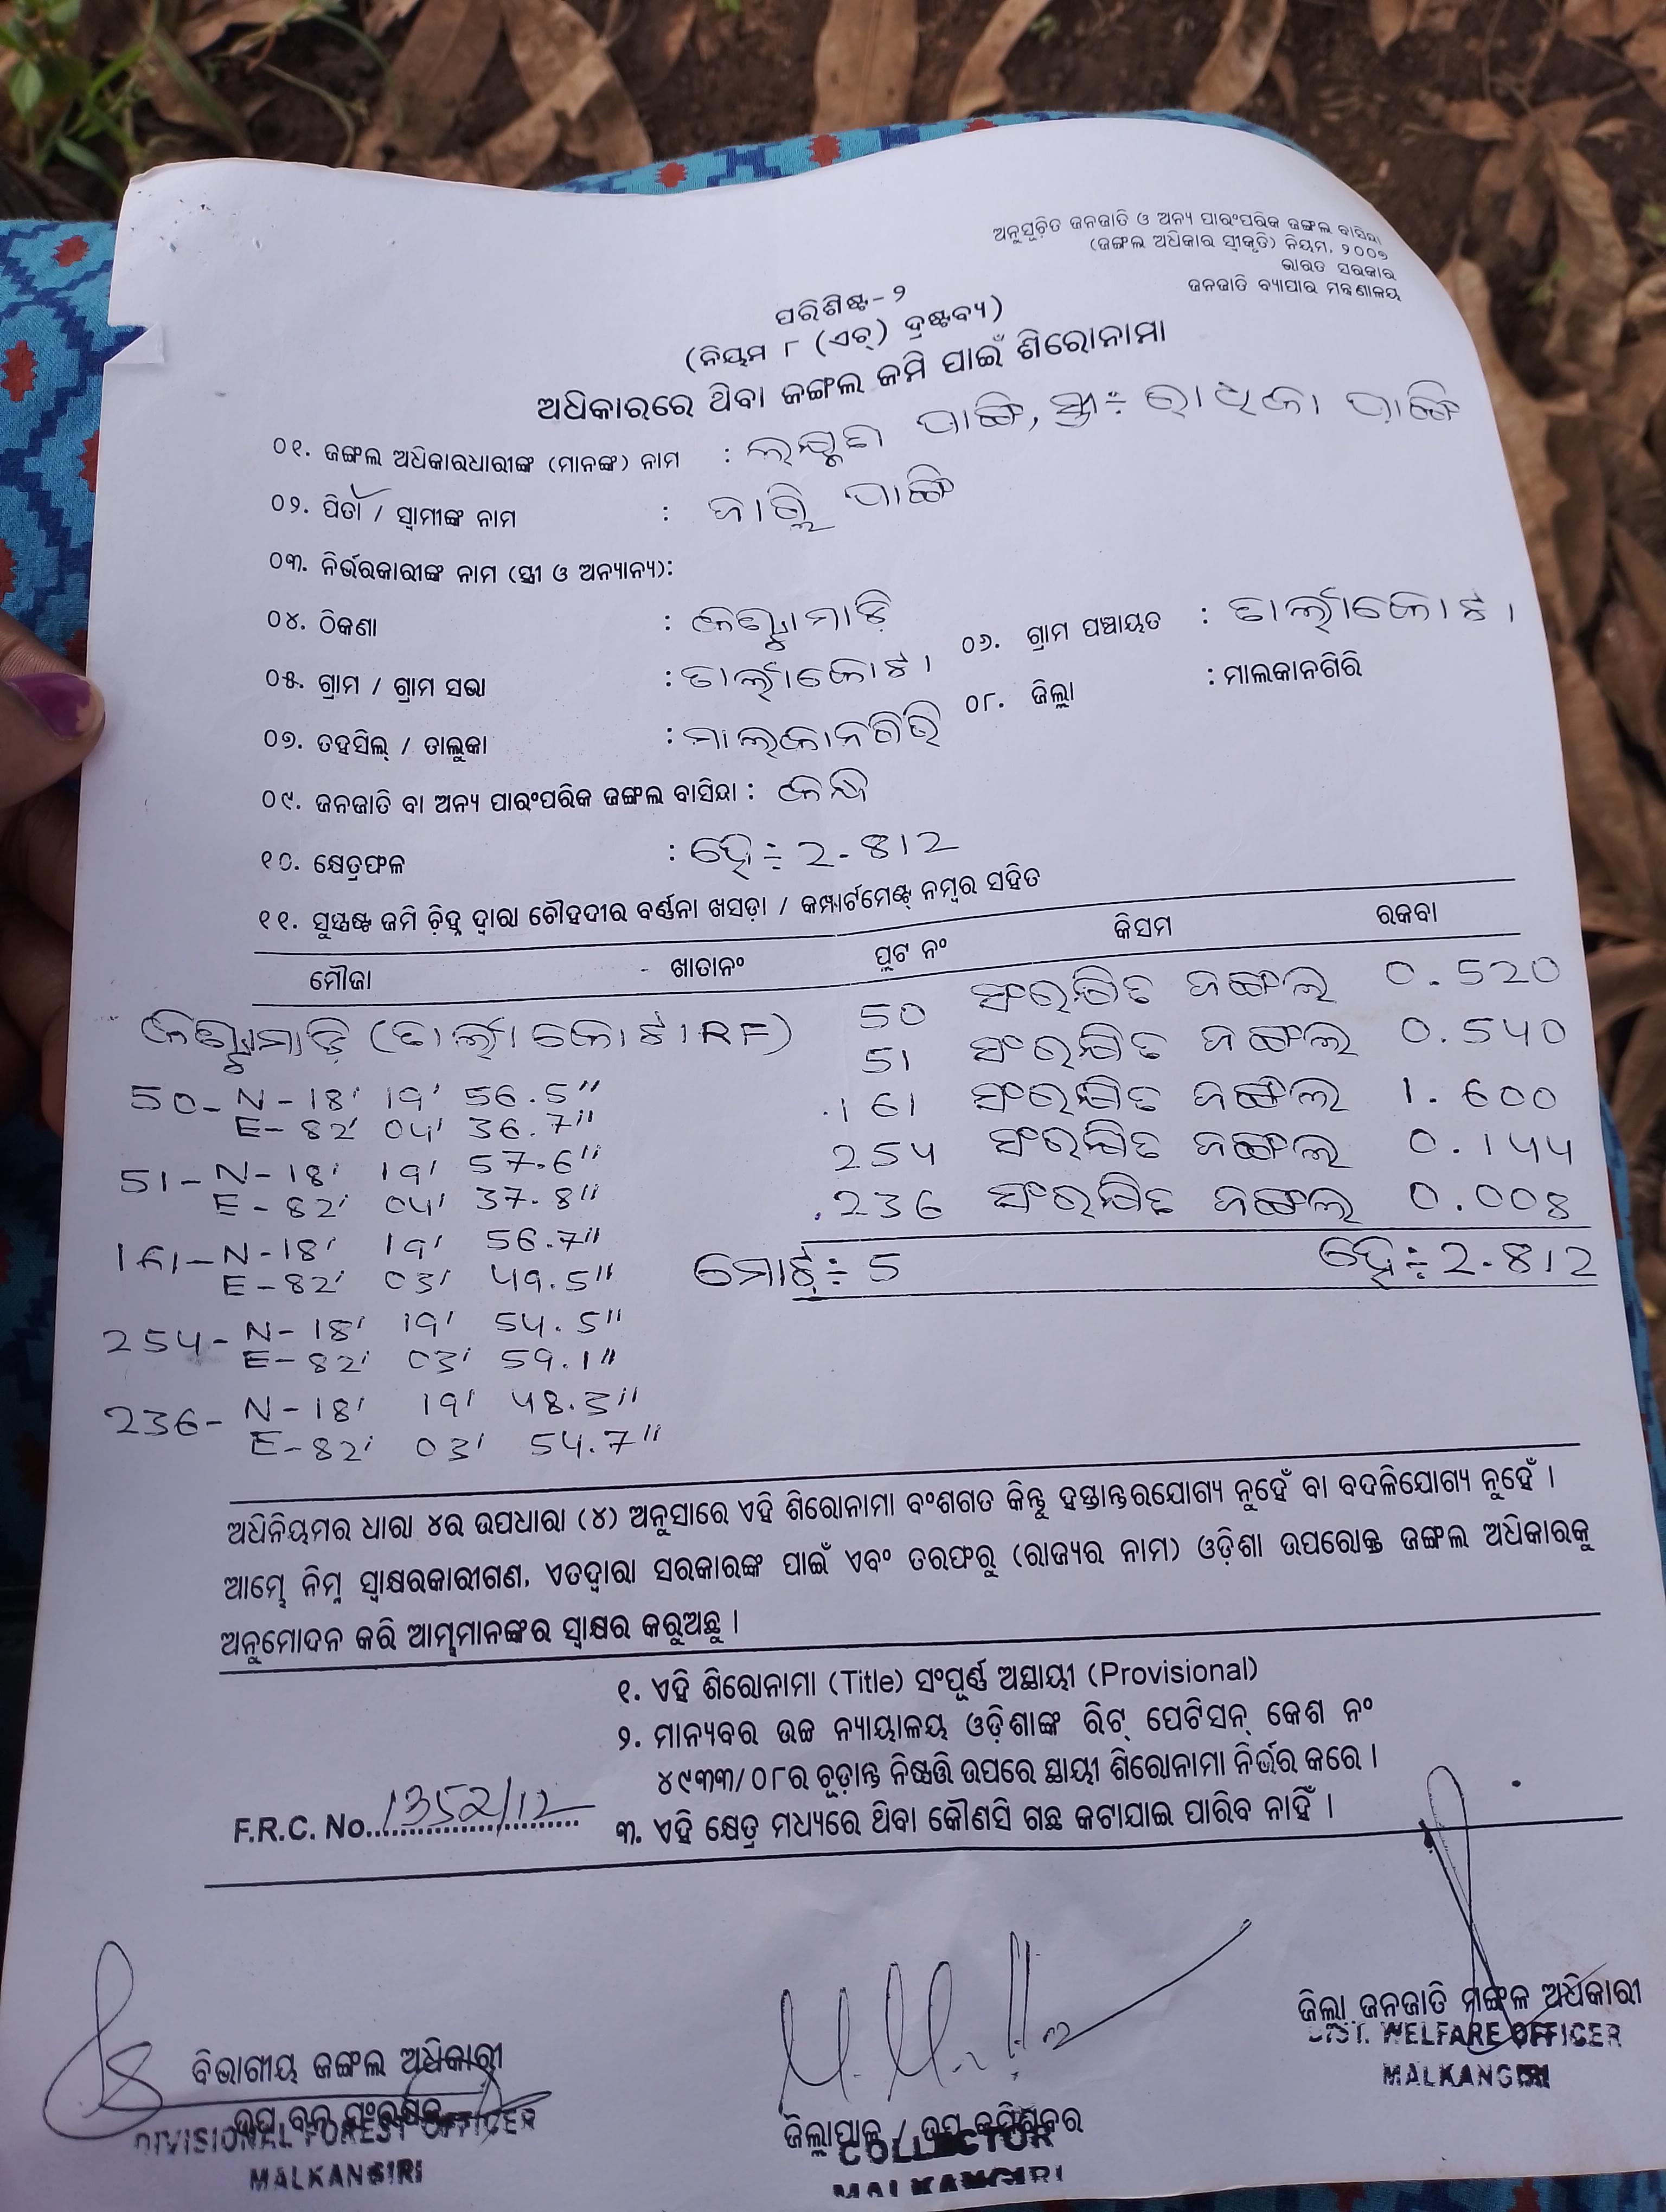 ଅନୁସୂଚିତ ଜନଜାତି ଓ ଅନ୍ୟ ପାରଂପରିକ ଜଙ୍ଗଲ ବାସିନ୍ଦା
(ଜଙ୍ଗଲ ଅଧିକାର ସ୍ୱୀକୃତି) ନିୟମ, ୨୦୦୭
ଭାରତ ସରକାର
ଜନଜାତି ବ୍ୟାପାର ମନ୍ତ୍ରଣାଳୟ
ପରିଶିଷ୍ଟ-୨
(ନିୟମ ୮ (ଏଚ୍) ଦ୍ରଷ୍ଟବ୍ୟ)
ଅଧିକାରରେ ଥିବା ଜଙ୍ଗଲ ଜମି ପାଇଁ ଶିରୋନାମା
୦୧. ଜଙ୍ଗଲ ଅଧିକାରଧାରୀଙ୍କ (ମାନଙ୍କ) ନାମ : ପାଙ୍ଗି, ସ୍ତ୍ରୀ÷ ରାଧିକା ପାଙ୍ଗି
୦୨. ପିତା / ସ୍ୱାମୀଙ୍କ ନାମ : ପାଙ୍ଗି
୦୩. ନିର୍ଭରକାରୀଙ୍କ ନାମ (ସ୍ତ୍ରୀ ଓ ଅନ୍ୟାନ୍ୟ):
୦୪. ଠିକଣା :
୦୫. ଗ୍ରାମ / ଗ୍ରାମ ସଭା : ତାର୍ଲାକୋଟା ୦୬. ଗ୍ରାମ ପଞ୍ଚାୟତ : ତାର୍ଲାକୋଟା
୦୭. ତହସିଲ୍ / ତାଲୁକା : ମାଲକାନଗିରି ୦୮. ଜିଲ୍ଲା : ମାଲକାନଗିରି
୦୯. ଜନଜାତି ବା ଅନ୍ୟ ପାରଂପରିକ ଜଙ୍ଗଲ ବାସିନ୍ଦା :
୧୦. କ୍ଷେତ୍ରଫଳ : ହେ÷ 2.812
୧୧. ସୁସ୍ପଷ୍ଟ ଜମି ଚିହ୍ନ ଦ୍ୱାରା ଚୌହଦୀର ବର୍ଣ୍ଣନା ଖସଡ଼ା / କମ୍ପାର୍ଟମେଣ୍ଟ୍ ନମ୍ବର ସହିତ
ମୌଜା ଖାତାନଂ ପ୍ଲଟ ନଂ କିସମ ରକବା
(ତାର୍ଲାକୋଟା RF) 50 ସଂରକ୍ଷିତ ଜଙ୍ଗଲ 0.520
51 ସଂରକ୍ଷିତ ଜଙ୍ଗଲ 0.540
161 ସଂରକ୍ଷିତ ଜଙ୍ଗଲ 1.600
254 ସଂରକ୍ଷିତ ଜଙ୍ଗଲ 0.144
236 ସଂରକ୍ଷିତ ଜଙ୍ଗଲ 0.008
ମୋଟ÷ 5 ହେ÷ 2.812
50 - N - 18' 19' 56.5"
E - 82' 04' 36.7"
51 - N - 18' 19' 57.6"
E - 82' 04' 37.8"
161 - N - 18' 19' 56.7"
E - 82' 03' 49.5"
254 - N - 18' 19' 54.5"
E - 82' 03' 59.1"
236 - N - 18' 19' 48.3"
E - 82' 03' 54.7"
ଅଧିନିୟମର ଧାରା ୪ର ଉପଧାରା (୪) ଅନୁସାରେ ଏହି ଶିରୋନାମା ବଂଶଗତ କିନ୍ତୁ ହସ୍ତାନ୍ତରଯୋଗ୍ୟ ନୁହେଁ ବା ବଦଳିଯୋଗ୍ୟ ନୁହେଁ ।
ଆମ୍ଭେ ନିମ୍ନ ସ୍ୱାକ୍ଷରକାରୀଗଣ, ଏତଦ୍ୱାରା ସରକାରଙ୍କ ପାଇଁ ଏବଂ ତରଫରୁ (ରାଜ୍ୟର ନାମ) ଓଡ଼ିଶା ଉପରୋକ୍ତ ଜଙ୍ଗଲ ଅଧିକାରକୁ
ଅନୁମୋଦନ କରି ଆମ୍ଭମାନଙ୍କର ସ୍ୱାକ୍ଷର କରୁଅଛୁ ।
୧. ଏହି ଶିରୋନାମା (Title) ସଂପୂର୍ଣ୍ଣ ଅସ୍ଥାୟୀ (Provisional)
୨. ମାନ୍ୟବର ଉଚ୍ଚ ନ୍ୟାୟାଳୟ ଓଡ଼ିଶାଙ୍କ ରିଟ୍ ପେଟିସନ୍ କେଶ ନଂ
୪୯୩୩/୦୮ର ଚୂଡ଼ାନ୍ତ ନିଷ୍ପତ୍ତି ଉପରେ ସ୍ଥାୟୀ ଶିରୋନାମା ନିର୍ଭର କରେ ।
F.R.C. No. 1352/12
୩. ଏହି କ୍ଷେତ୍ର ମଧ୍ୟରେ ଥିବା କୌଣସି ଗଛ କଟାଯାଇ ପାରିବ ନାହିଁ ।
ଜିଲ୍ଲା ଜନଜାତି ମଙ୍ଗଳ ଅଧିକାରୀ
DIST. WELFARE OFFICER
MALKANGIRI
ବିଭାଗୀୟ ଜଙ୍ଗଲ ଅଧିକାରୀ
ଉପ ବନ ସଂରକ୍ଷକ
DIVISIONAL FOREST OFFICER
MALKANGIRI
ଜିଲ୍ଲାପାଳ / ଉପ କମିଶନର
COLLECTOR
MALKANGIRI